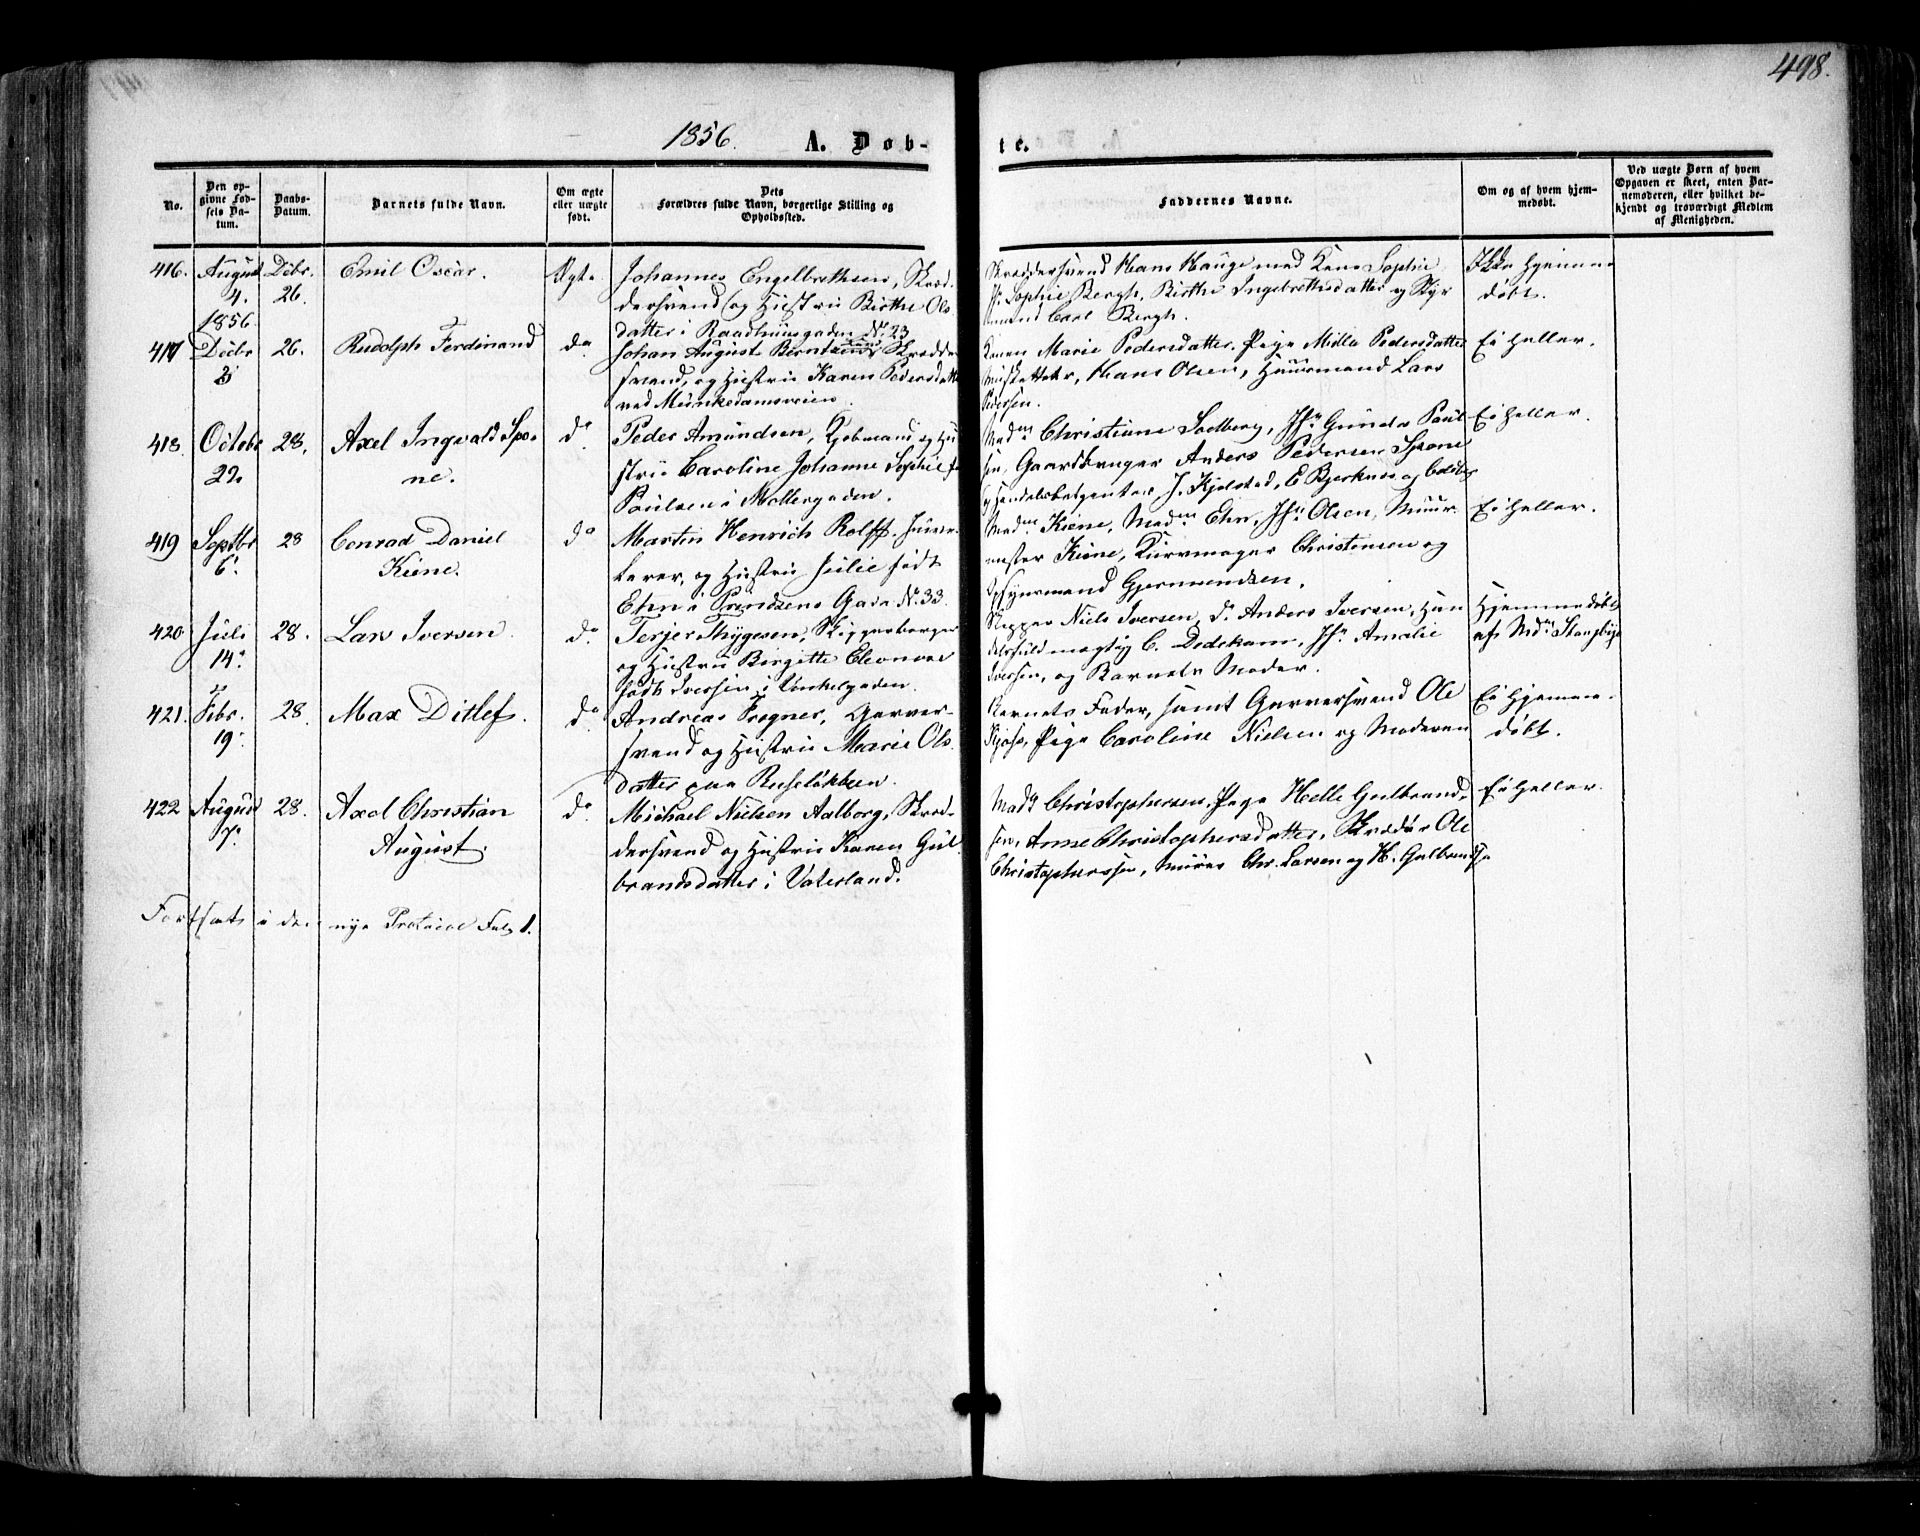 498.
1856. A. Døb-
te.
No.
Den op-
givne Fød-
sels Da-
tum.
Daabs-
Datum.
Barnets fulde Navn.
Om ægte
eller uægte
født.
Dets
Forældres fulde Navn, borgerlige Stilling og
Opholdssted.
Faddernes Navne.
Om og af hvem hjem-
medøbt.
Ved uægte Børn af hvem
Opgaven er skeet, enten Bar-
nemoderen, eller hvilket be-
kjendt og troværdigt Medlem
af Menigheden.
416. August Dcbr. Emil Oscar. Ægte Johannes Engelbrethsen, Skræd-
4. 26. dersvend og Hustru Birthe Ols-
1856. datter i Raadhuusgaden No 23
Skræddersvend Hans Hauge med Kone Sophie
Jfr. Sophie Bergh, Birthe Ingebrethsdatter og Styr
mand Carl Bergh.
Ikke hjemme
døbt.
417 Decbr 26. Rudolph Ferdinand do Johan August Berntsen, Skrædder
3 svend, og Hustru Karen Pedersdatter
ved Munkedamsveien.
Konen Marie Pedersdatter, Pige Milla Pedersdatter
Musketteer, Hans Olsen, Huusmand Lars
Pedersen.
Ei heller.
418. Octobr 28. Axel Ingvald Spo- do Peder Amundsen, Kjøbmand og Hu
22. ne. stru Caroline Johanne Sophie f.
Paulsen i Møllergaden.
Madm Christiane Sodberg, Jfr Gunda Paul
sen, Gaardbruger Anders Pedersen Spone
og Handelsbetjenter, J. Kjelstad, E Bjerknes
Ei heller.
419 Septbr 28 Conrad Daniel do Martin Henrich Rolff,
6. Kiene. og Hustru Julie født
Ehn i Prindsens Gade No 33.
Madm Kiene, Madm Ehn, Jfr Olsen, Muur-
mester Kiene, Kurvmager Christensen og
Opsynsmand Gjermundsen.
Ei heller.
420. Juli 28. Lars Iversen. do Terjer Thygesen, Skipperborger
14. og Hustru Birgitte Eleonore
født Iversen i Vinkelgaden.
Skipper Niels Iversen, do Anders Iversen, Han
delsfuldmægtig C. Dedekam, Jfr Amalie
Iversen, og Barnets Moder.
Hjemmedøbt
af Md. Stangbye
421. Febr. 28. Max Ditlef. do Andreas Fregner, Garver-
19. svend og Hustru Marie Ols
datter paa Ruseløkken.
Barnets Fader, samt Garversvend Ole
Pige Caroline Nielsen og Moderen
Ei hjemme-
døbt.
422 August 28. Axel Christian do Michael Nielsen Aalborg, Skræd-
7. August. dersvend og Hustru Karen Gul
brandsdatter i Vaterland.
Mad. Christophersen, Pige Helle Gulbrand-
sen, Anne Christophersdatter, Skræder Ole
Christophersen, Murer Chr. Larsen og H. Gulbrandsen
Ei heller.
Fortsat i den nye Protocol Fol 1.